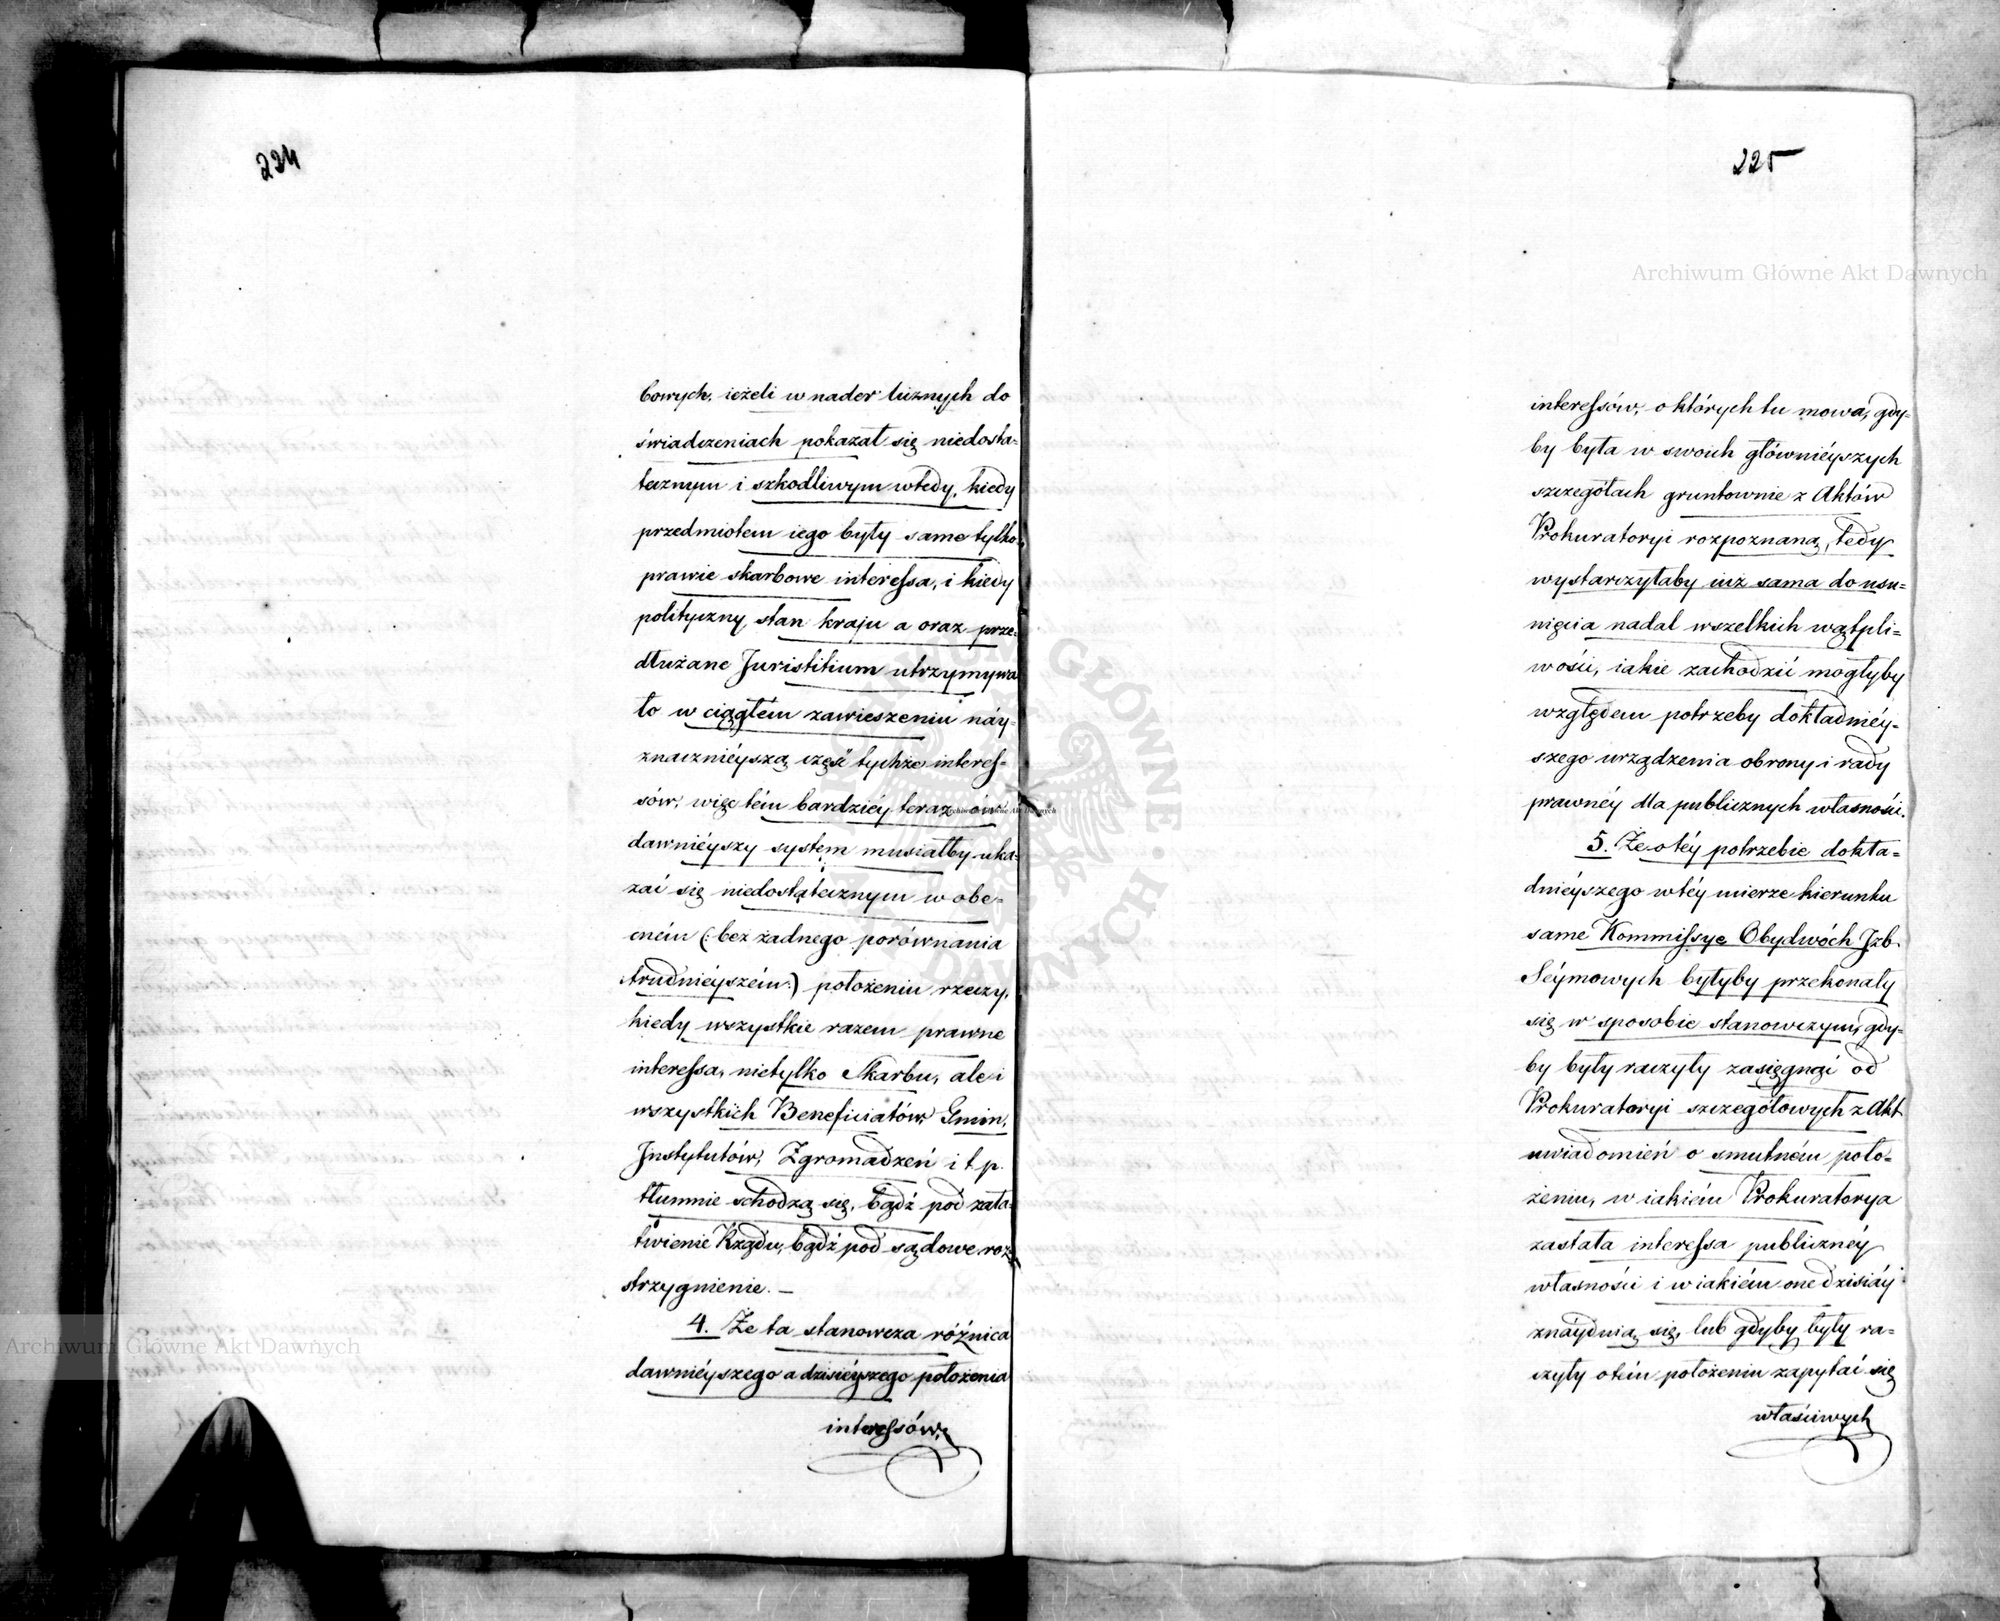 224
bowych, ieżeli w nader licznych do
świadczeniach pokazał się niedosta=
tecznym i szkodliwym wtedy, kiedy
przedmiotem iego były same tylko
prawie skarbowe interessa, i kiedy
polityczny stan kraju a oraz prze=
dłużane Juristitium utrzymywa
ło w ciągłém zawieszeniu náy=
znaczniéyszą część tychże interes=
sów, więc tém bardziéy teraz ów
dawniéyszy system musiałby uka=
zać się niedostatecznym w obe=
cném (: bez żadnego porównania
trudniéyszém :) położeniu rzeczy,
kiedy wszystkie razem prawne
interessa, nietylko Skarbu, ale i
wszystkich Beneficiatów, Gmin,
Instytutów, Zgromadzeń i t. p.
tłumnie schodzą się, bądź pod zała=
twienie Rządu, bądź pod sądowe roz=
strzygnienie. —
4. Że ta stanowcza różnica
dawniéyszego a dzisiéyszego położenia
interessów,
225
interessów, o których tu mowa, gdy=
by była w swoich główniéyszych
szczegółach gruntownie z Aktów
Prokuratoryi rozpoznaną, tedy
wystarczyłaby iuż sama do usu=
nięcia nadal wszelkich wątpli=
wości, iakie zachodzić mogłyby
względem potrzeby dokładniéy=
szego urządzenia obrony i rady
prawnéy dla publicznych własności.
5. Że o téy potrzebie dokła=
dniéyszego w téy mierze kierunku
same Kommissye Obydwóch Izb
Séymowych byłyby przekonały
się w sposobie stanowczym, gdy=
by były raczyły zasięgnąć od
Prokuratoryi szczegółowych z Akt
uwiadomień o smutném poło=
żeniu, w iakiém Prokuratorya
zastała interessa publicznéy
własności i w iakiém one dzisiáy
znáydują się, lub gdyby były ra=
czyły o tém położeniu zapytać się
właściwych
Archiwum Główne Akt Dawnych
Archiwum Główne Akt Dawnych
Archiwum Główne Akt Dawnych